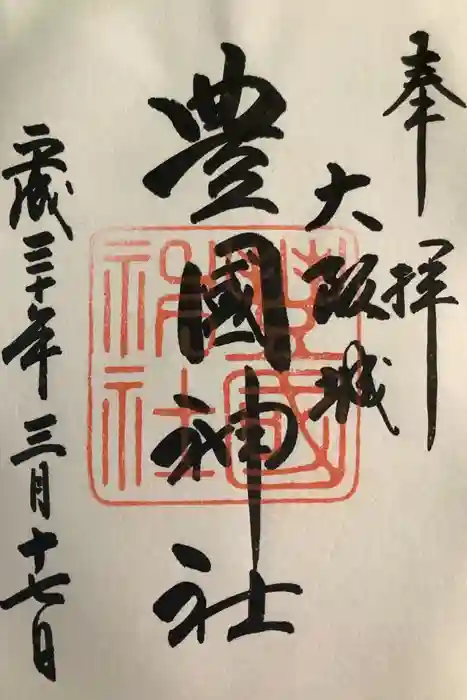 奉拝
大阪城
豊國神社
平成三十年三月十七日
豊國
神社